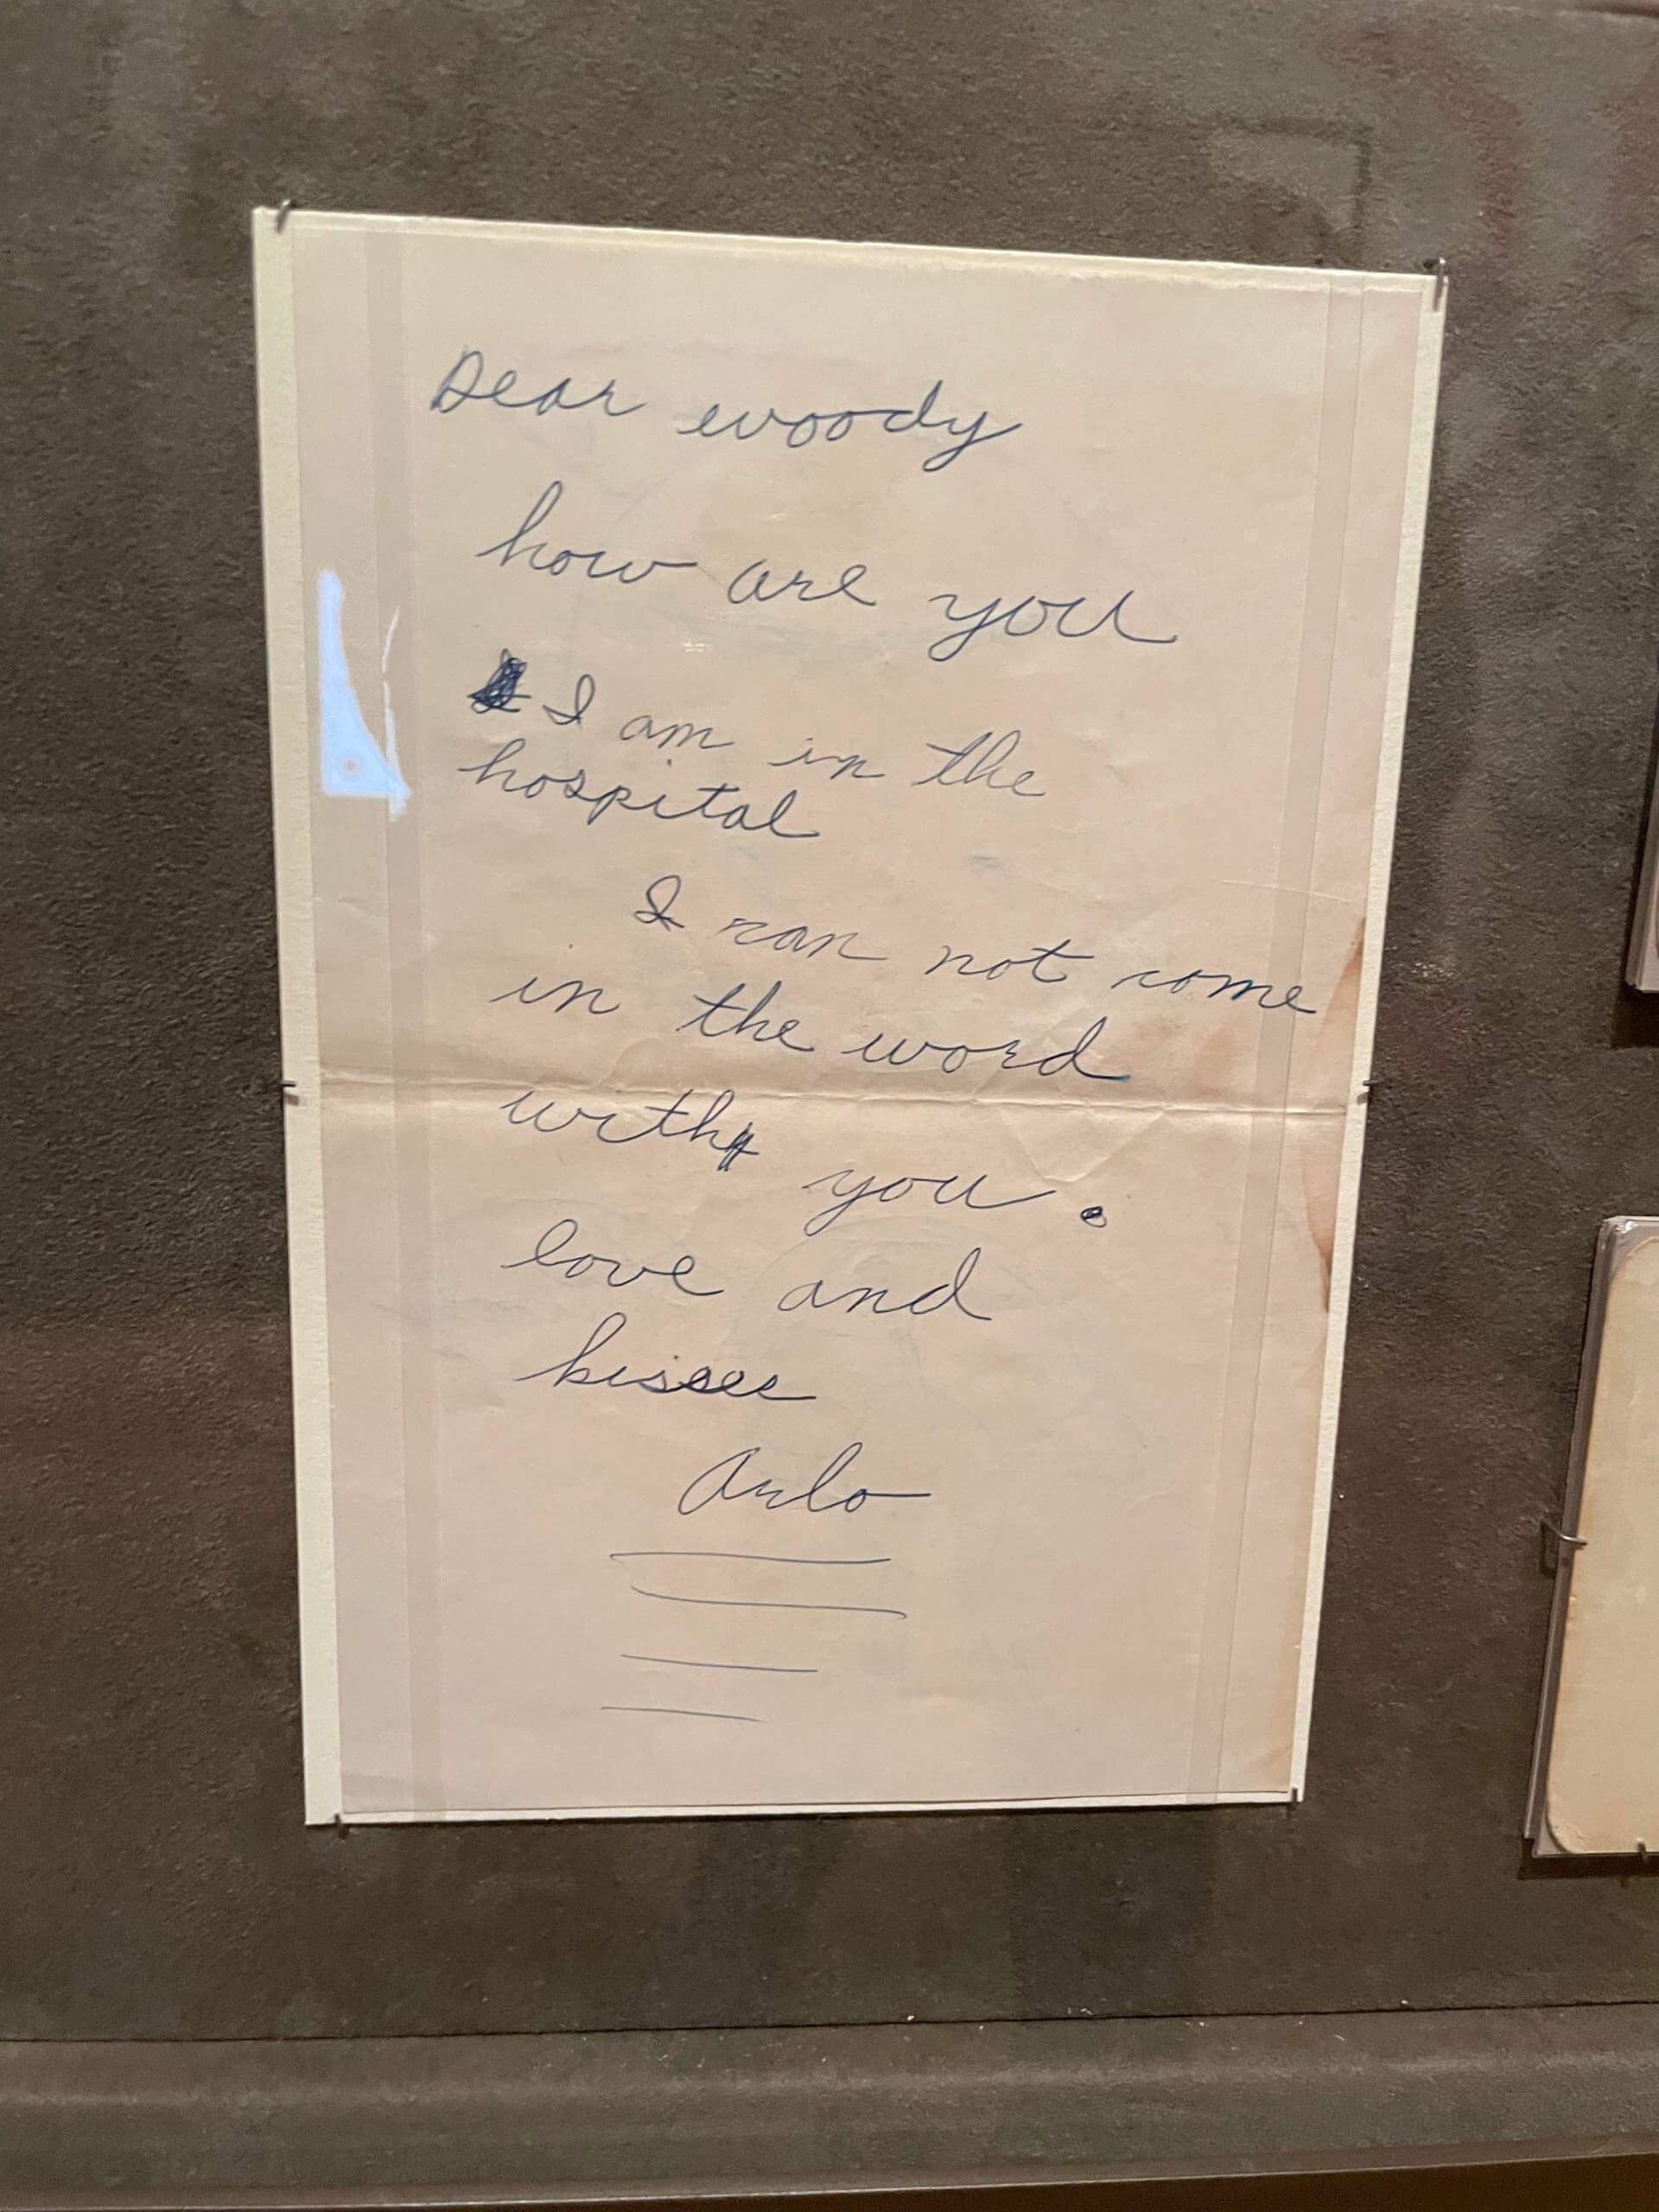 Dear woody
how are you
I am in the
hospital
I can not come
in the word
with you.
love and
kisses
Arlo